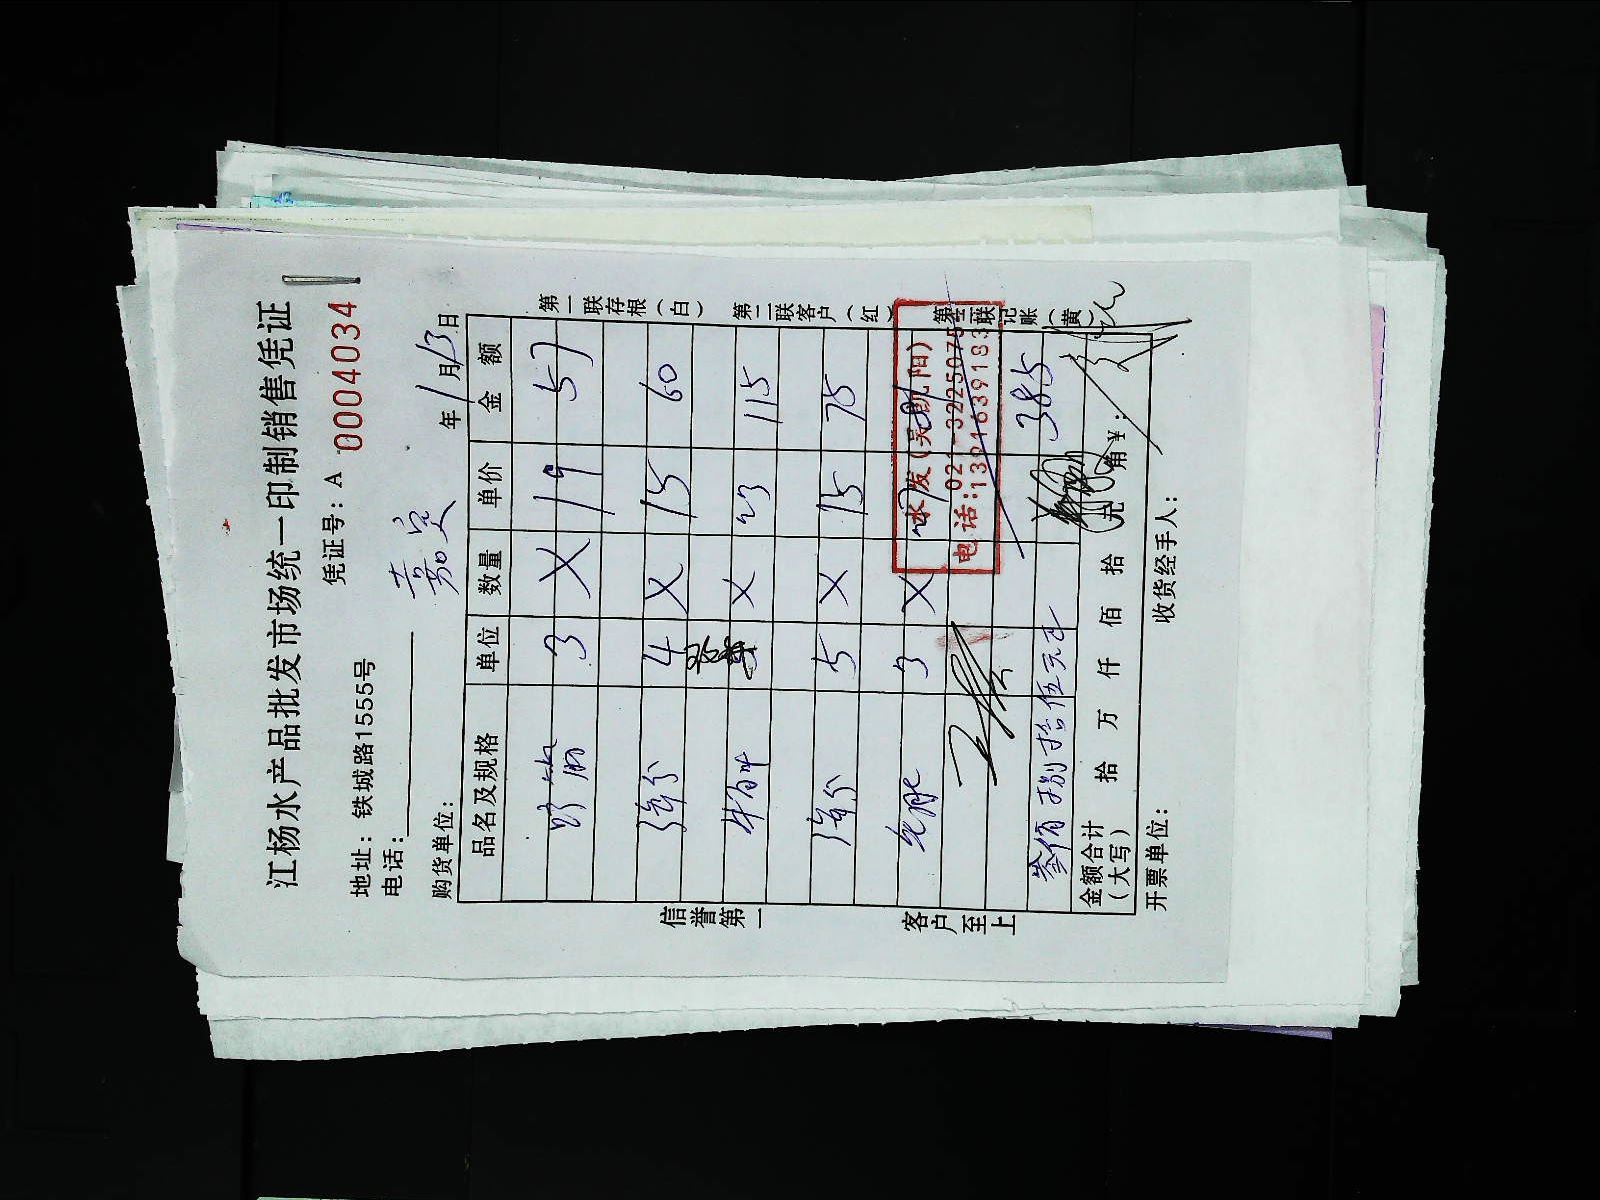 江杨水产品批发市场统一印制销售凭证
地址：铁城路1555号 凭证号：A 0004034
电话：
购货单位： 嘉定 年 1月13日
品名及规格 单位 数量 单价 金额
3 × 19 57
4 × 15 60
5 × 23 115
海分 5 × 15 75
3 ×
叁佰捌拾伍元正 385
金额合计（大写） 拾 万 仟 佰 拾 元 角 ￥：
开票单位： 收货经手人：
信誉第一 客户至上
第一联存根（白） 第二联客户（红） 第三联记账（黄）
水发（吴凯阳）
电话：021-3225075
13916391833